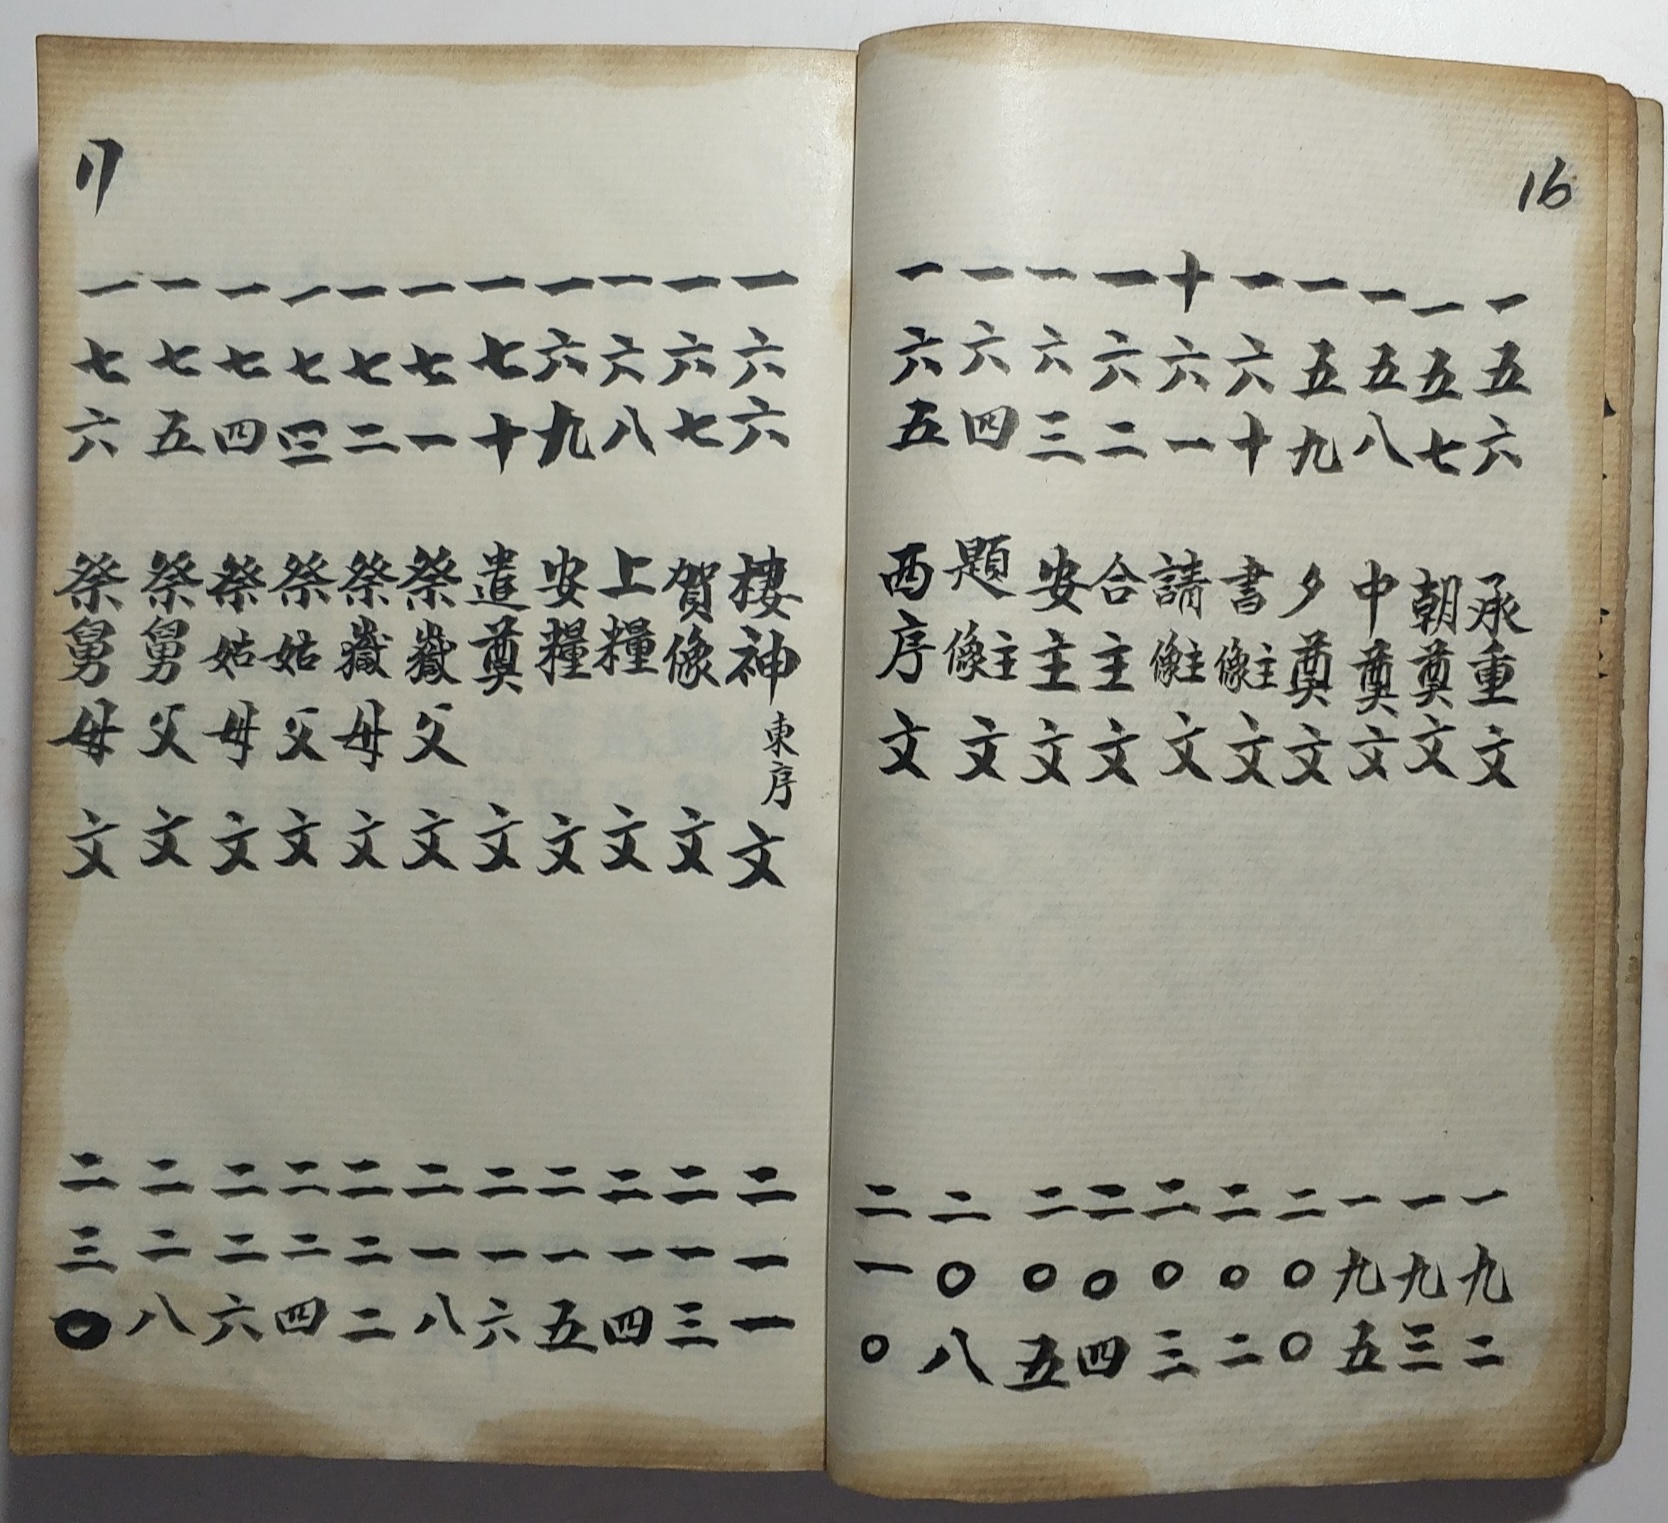 16
一五六 承重文 一九二
一五七 朝奠文 一九三
一五八 中奠文 一九五
一五九 夕奠文 二〇〇
一六十 書像主文 二〇二
十六一 請像主文 二〇三
一六二 合主文 二〇四
一六三 安主文 二〇五
一六四 題像主文 二〇八
一六五 西序文 二一〇
17
一六六 棲神東序文 二一一
一六七 賀像文 二一三
一六八 上糧文 二一四
一六九 安糧文 二一五
一七十 遣奠文 二一六
一七一 祭嶽父文 二一八
一七二 祭嶽母文 二二二
一七三 祭姑父文 二二四
一七四 祭姑母文 二二六
一七五 祭舅父文 二二八
一七六 祭舅母文 二三〇